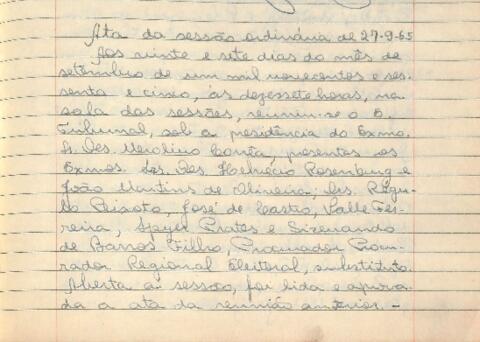 Ata da sessão ordinária de 27-9-65
Aos vinte e sete dias do mês de
setembro de um mil novecentos e ses-
senta e cinco, às dezessete horas, na
sala das sessões, reuniu-se o E.
Tribunal, sob a presidência do Exmo.
Sr. Des. Merolino Corrêa, presentes os
Exmos. Srs. Des. Helvécio Rosenburg e
João Martins de Oliveira; Drs. Régu-
lo Peixoto, José de Castro, Valle Fer-
reira, Speyer Prates e Sizenando
de Barros Filho, Procurador Procu-
rador Regional Eleitoral, substituto.
Aberta a sessão, foi lida e aprova-
da a ata da reunião anterior. -